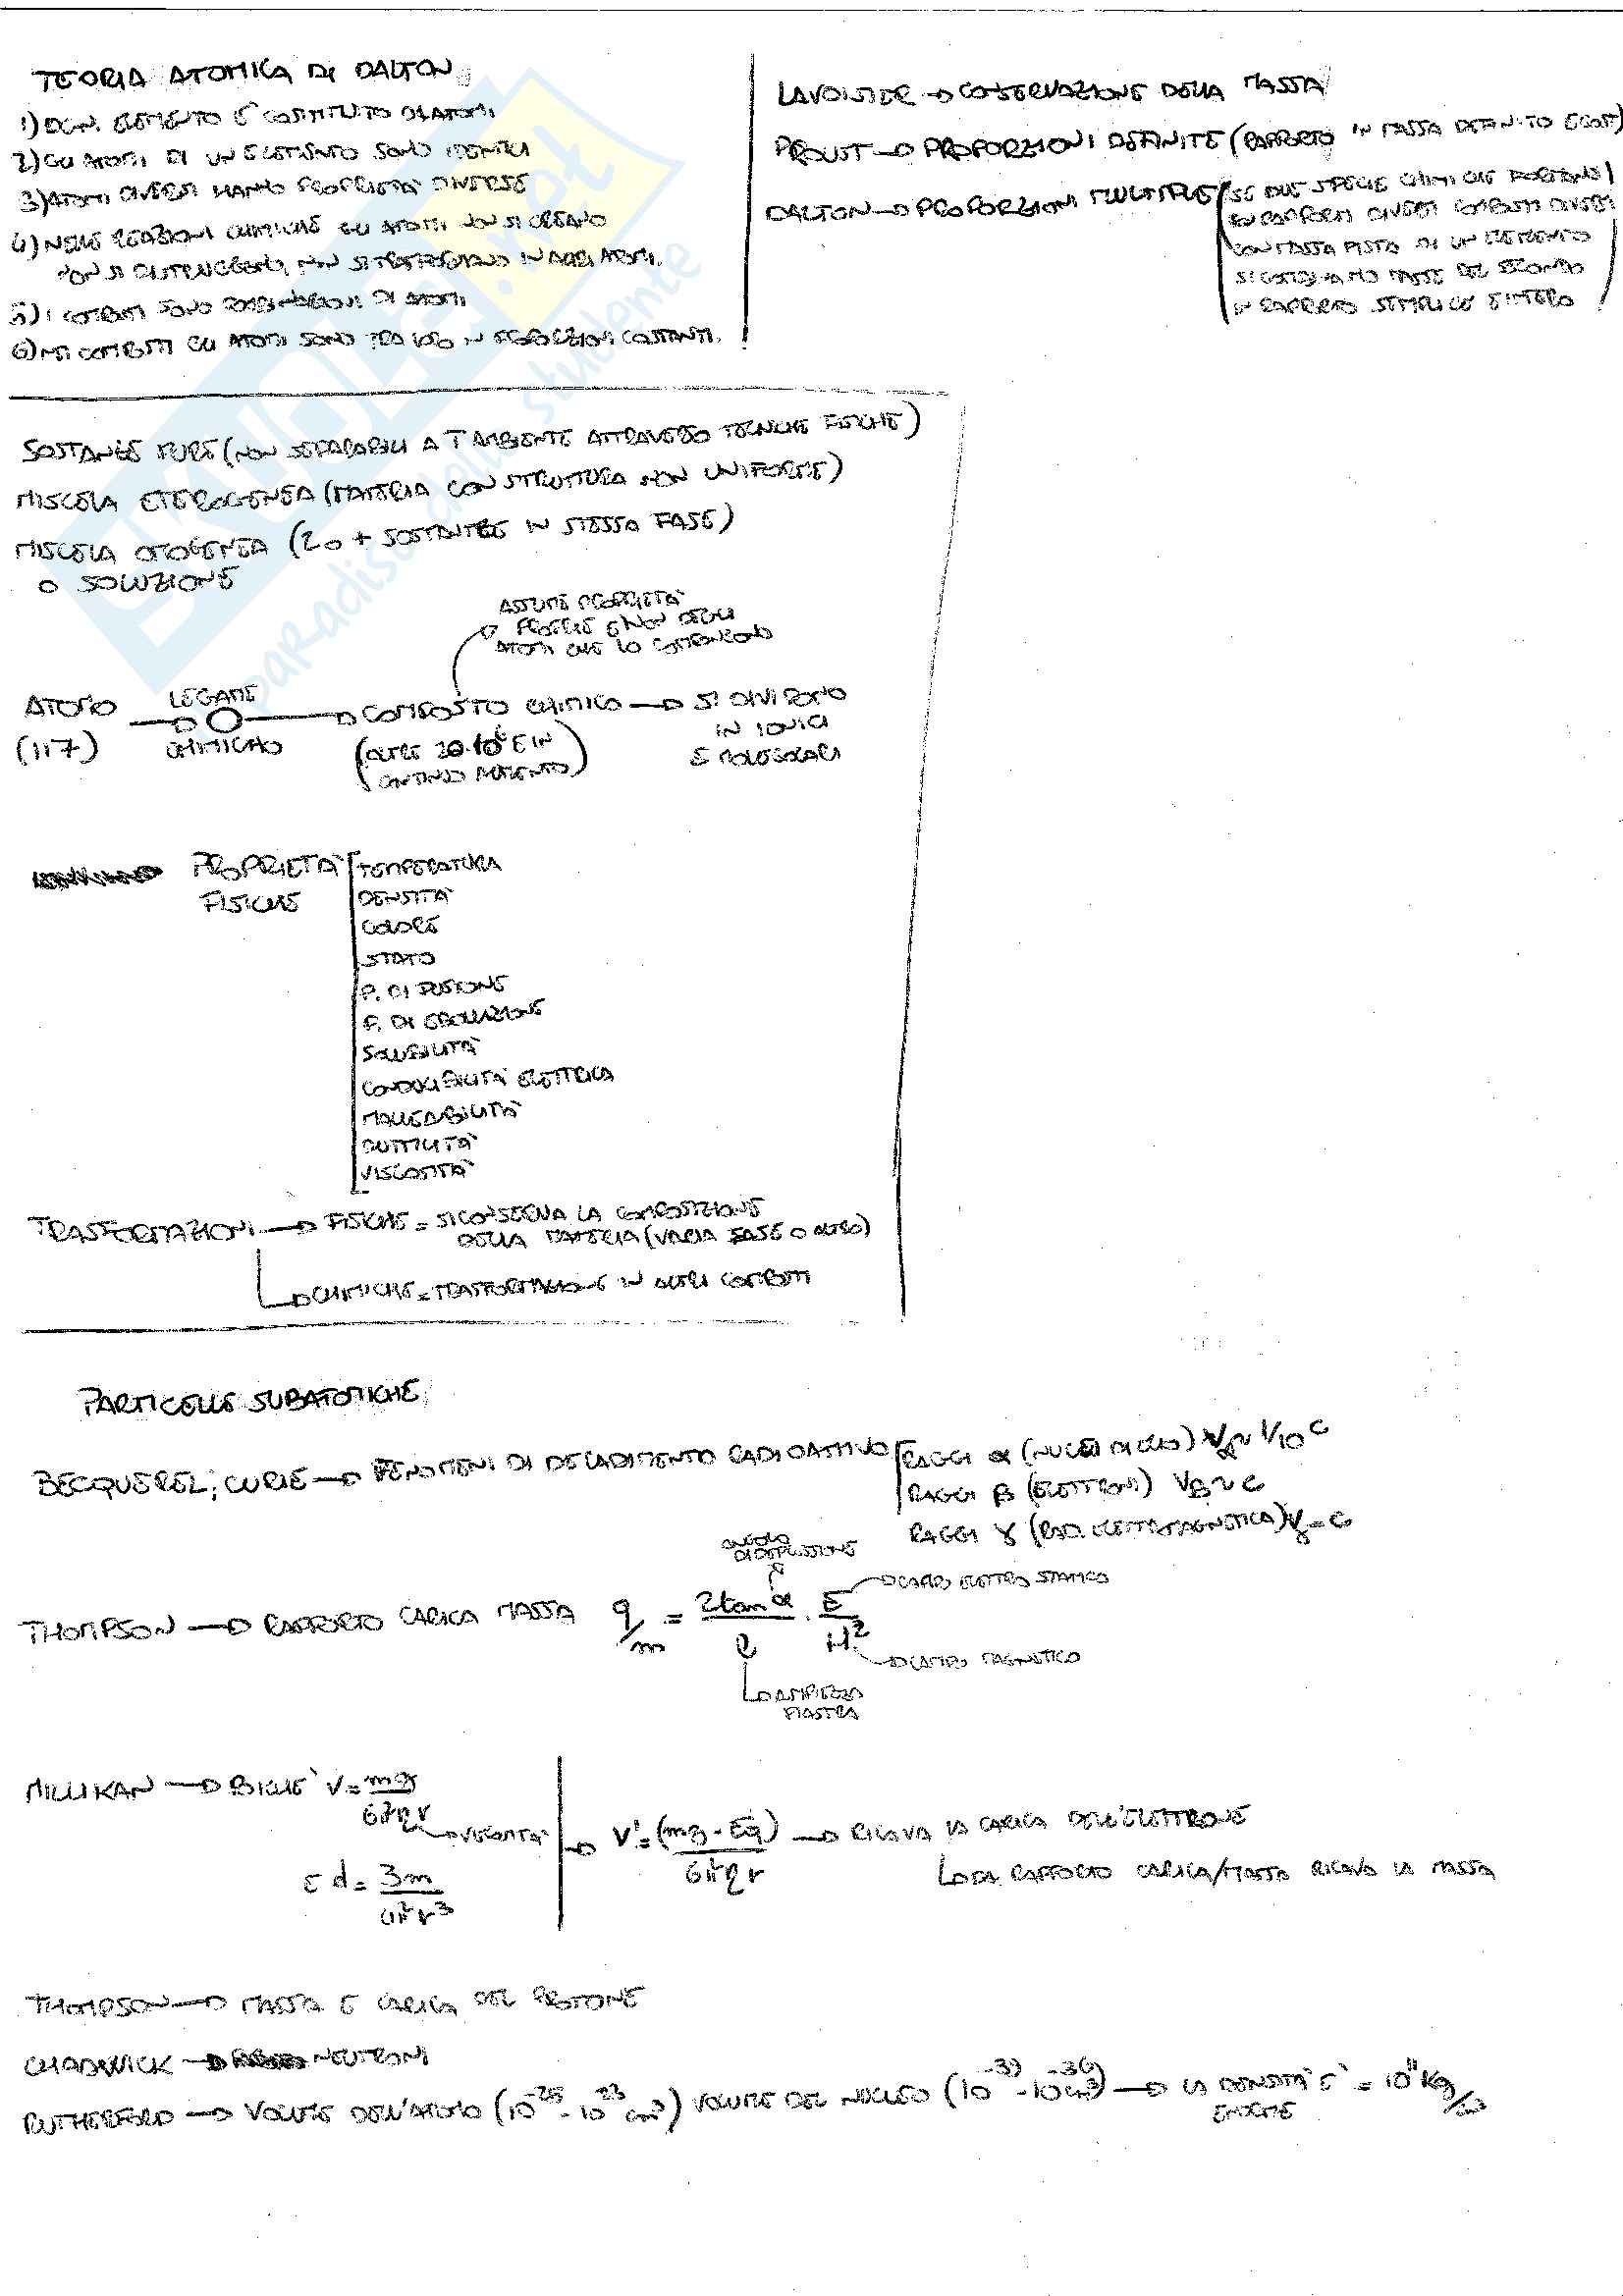 TEORIA ATOMICA DI DALTON
1) OGNI ELEMENTO È COSTITUITO DI ATOMI
2) GLI ATOMI DI UN ELEMENTO SONO IDENTICI
3) ATOMI DIVERSI HANNO PROPRIETÀ DIVERSE
4) NELLE REAZIONI CHIMICHE GLI ATOMI NON SI CREANO
NON SI DISTRUGGONO, NON SI TRASFORMANO IN ALTRI ATOMI.
5) I COMPOSTI SONO COMBINAZIONI DI ATOMI
6) NEI COMPOSTI GLI ATOMI SONO TRA LORO IN PROPORZIONI COSTANTI.
LAVOISIER → CONSERVAZIONE DELLA MASSA
PROUST → PROPORZIONI DEFINITE (RAPPORTO IN MASSA DEFINITO E COST)
DALTON → PROPORZIONI MULTIPLE (SE DUE SPECIE CHIMICHE FORMANO
IN RAPPORTI DIVERSI COMPOSTI DIVERSI
CON MASSA FISSA DI UN ELEMENTO
SI COMBINANO MASSE DEL SECONDO
IN RAPPORTO SEMPLICE E INTERO)
SOSTANZE PURE (NON SEPARABILI A T AMBIENTE ATTRAVERSO TECNICHE FISICHE)
MISCELA ETEROGENEA (MATERIA CON STRUTTURA NON UNIFORME)
MISCELA OMOGENEA (2 O + SOSTANZE IN STESSA FASE)
O SOLUZIONE
ASSUME PROPRIETÀ
PROPRIE E NON DEGLI
ATOMI CHE LO COMPONGONO
ATOMO → LEGAME CHIMICO → COMPOSTO CHIMICO → SI DIVIDONO
(117) (OLTRE 20·10⁶ E IN IN IONICI
CONTINUO AUMENTO) E MOLECOLARI
PROPRIETÀ FISICHE
TEMPERATURA
DENSITÀ
COLORE
STATO
P. DI FUSIONE
P. DI EBOLLIZIONE
SOLUBILITÀ
CONDUCIBILITÀ ELETTRICA
MALLEABILITÀ
DUTTILITÀ
VISCOSITÀ
TRASFORMAZIONI → FISICHE = SI CONSERVA LA COMPOSIZIONE
DELLA MATERIA (VARIA FASE O ALTRO)
→ CHIMICHE = TRASFORMAZIONE IN ALTRI COMPOSTI
PARTICELLE SUBATOMICHE
BECQUEREL; CURIE → FENOMENI DI DECADIMENTO RADIOATTIVO
RAGGI α (NUCLEI DI ELIO) Vα ~ 1/10 C
RAGGI β (ELETTRONI) Vβ ~ C
RAGGI γ (RAD. ELETTROMAGNETICA) Vγ = C
ANGOLO
DI DEFLESSIONE
THOMPSON → RAPPORTO CARICA MASSA q/m = 2tanα/l · E/H²
→ CAMPO ELETTRO STATICO
→ CAMPO MAGNETICO
→ AMPIEZZA
PIASTRA
MILLIKAN → BICHÈ V = mg/6πηr
→ VISCOSITÀ
E d = 3m/4πr³
→ V' = (mg - Eq)/6πηr → RICAVA LA CARICA DELL'ELETTRONE
→ DA RAPPORTO CARICA/MASSA RICAVO LA MASSA
THOMPSON → MASSA E CARICA DEL PROTONE
CHADWICK → NEUTRONI
RUTHERFORD → VOLUME DELL'ATOMO (10⁻²⁵ - 10⁻²³ cm³) VOLUME DEL NUCLEO (10⁻³⁹ - 10⁻³⁶ cm³) → LA DENSITÀ È = 10¹¹ Kg/cm³
ENORME